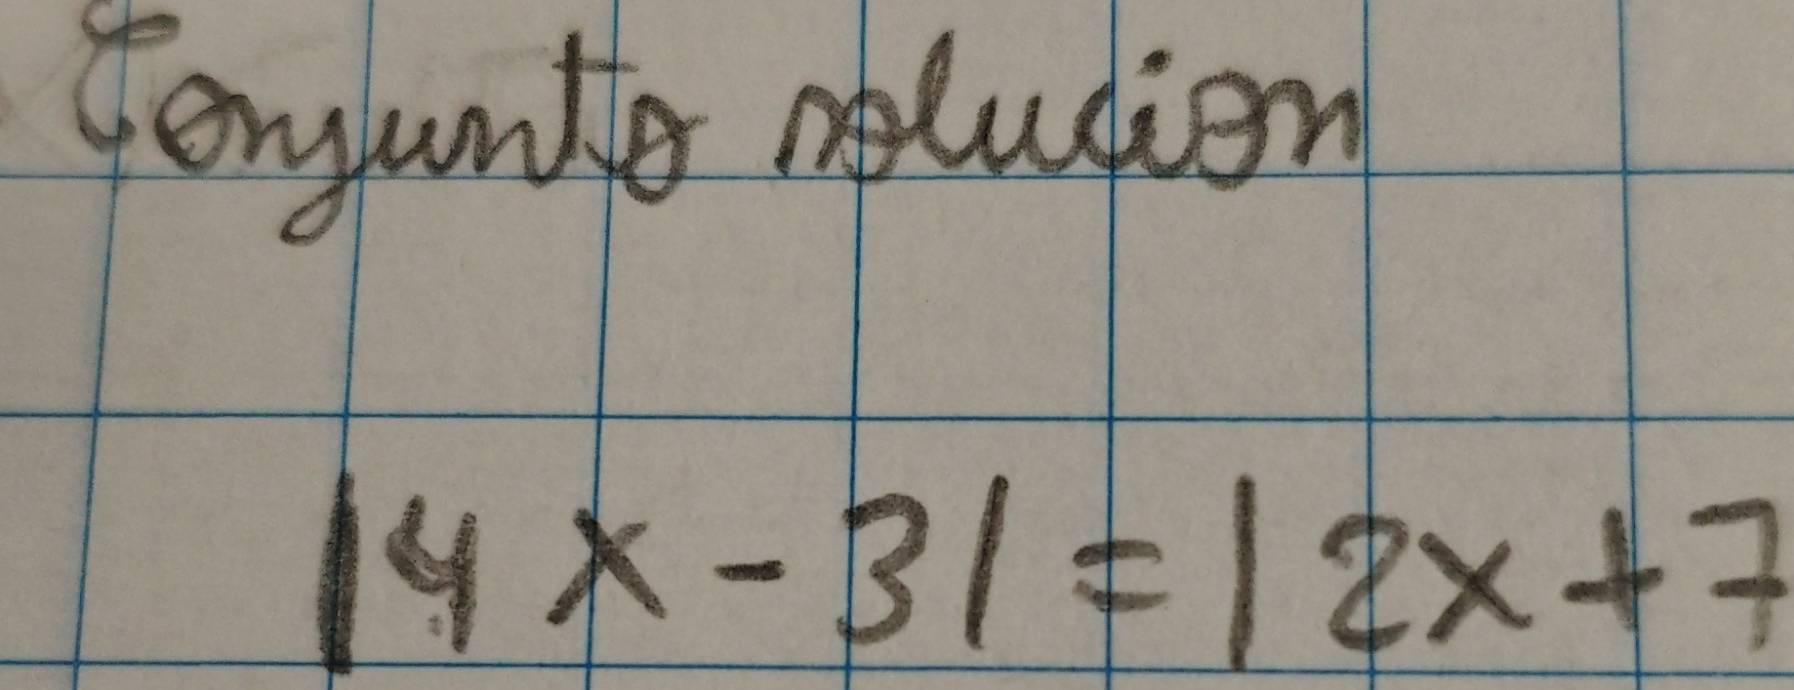 Conjunto solucion
|4x-3|=|2x+7